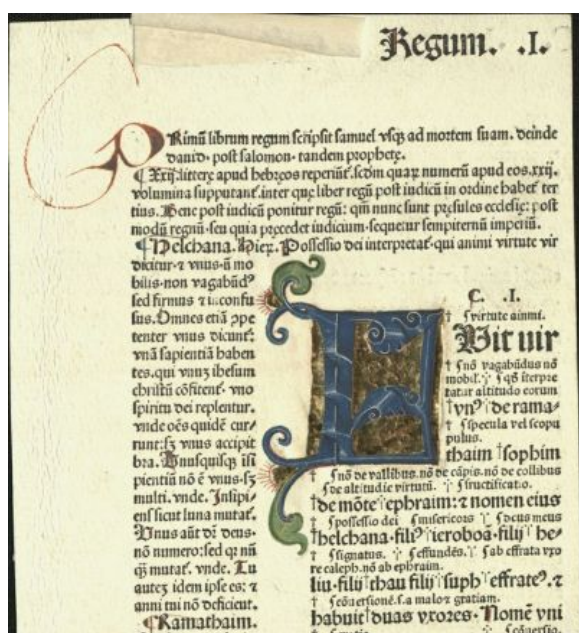 Regum. .I.
PRimū librum regum scripsit samuel vsq; ad mortem suam. deinde
dauid. post salomon. tandem prophete.
¶ Xxij. littere apud hebreos reperiūt. scdm quaꝝ numerū apud eos .xxij.
volumina supputant. inter que liber regū post iudicū in ordine habet ter
tius. Bene post iudicū ponitur regū: qm nunc sunt presules ecclesie: post
modū regnū. seu quia precedet iudicium. sequetur sempiternū imperiū.
¶ Helchana. Hieꝝ. Possessio dei interpretat. qui animi virtute vir
dicitur. ⁊ vnus. ū mo
bilis. non vagabūdꝰ
sed firmus ⁊ incōfu
sus. Omnes etiā ppe
tenter vnus dicunt:
vnā sapientiā haben
tes. qui vnuꝫ ihesum
christū cōfitent. vno
spiritu dei replentur.
vnde oēs quidē cur/
runt: sꝫ vnus accipit
bra. Vnusquisq; isi
pientiū nō ē vnus. sꝫ
multi. vnde. Insipi/
ens sicut luna mutat.
Vnus aūt dr̄ deus.
nō numero: sed qꝫ nū
ꝙ mutat. vnde. Tu
auteꝫ idem ipse es: ⁊
anni tui nō deficient.
¶ Ramathaim.
C. .I.
† ⌠virtute ainmi.
FVit vir
† ⌠nō vagabūdus nō
mobil. ∵ ⌠qd iterpre
tatur altitudo eorum
†vnꝰ †de rama/
† ⌠specula vel scopu
pulus.
thaim †sophim
⌠nō de vallibus. nō de cāpis. nō de collibus
⌠de altitudie virtutū. ∵ ⌠fructificatio.
†de mōte †ephraim: ⁊ nomen eius
† ⌠possessio dei ⌠misericors ∵ ⌠deus meus
†helchana. filiꝰ †ieroboā. filij †he/
† ⌠signatus. ∵ ⌠effundēs. † ⌠ab effrata vxo
re caleph. nō ab ephraim.
liu. filij †thau filij †suph †effrateꝰ. ⁊
† ⌠cōuersionē. s. a malo ⁊ gratiam.
habuit †duas vxores. Nomē vni